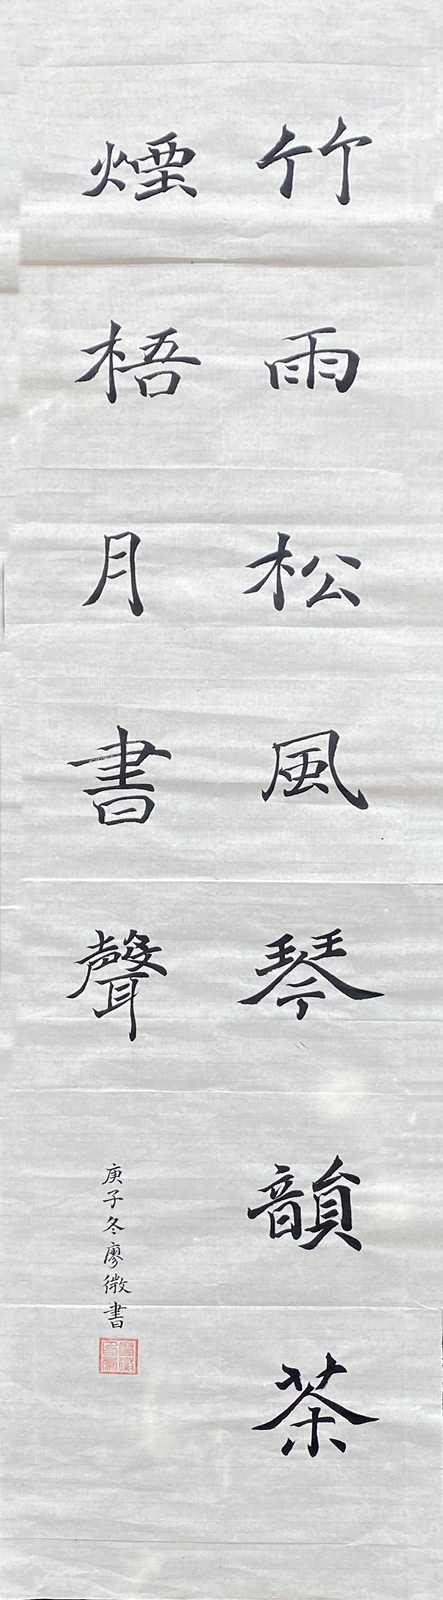 竹雨松風琴韻茶
煙梧月書聲
庚子冬廖微書